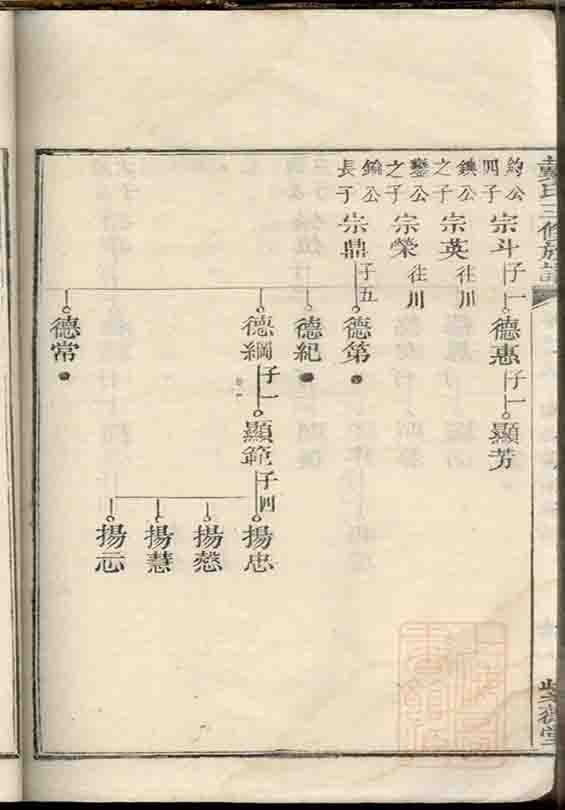 戴氏三修族譜
鈞公四子 宗斗 子一 德惠 子一 顯芳
鐭公之子 宗英 往川
鑾公之子 宗榮 往川
公長子 宗鼎 子五 德第
德紀
德綱 子一 顯範 子四 揚忠
揚慈
揚慧
揚示
德常